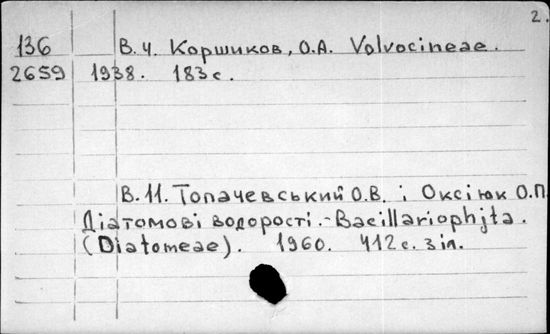 2.
136 В. 4. Коршиков, О.А. Volvocineae.
2659 1938. 183 с.
В. 11. Топачевський О.В. і Оксіюк О.П.
Діатомові водорості. - Bacillariophjta.
(Diatomeae). 1960. 412 с. з іл.